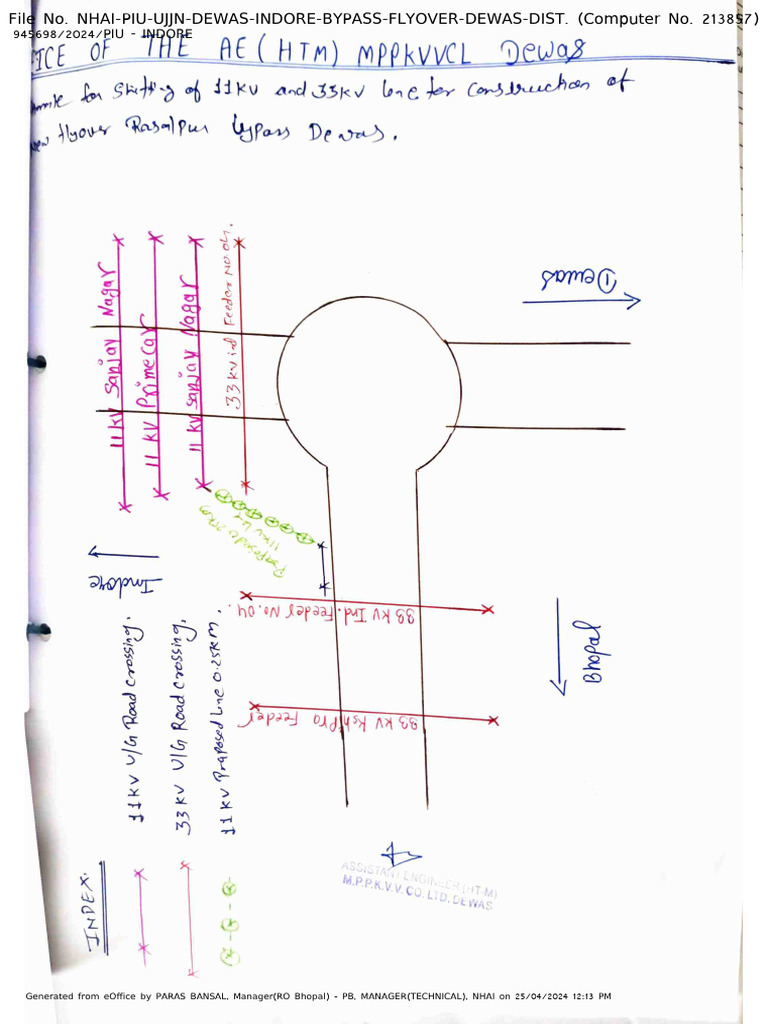 File No. NHAI-PIU-UJJN-DEWAS-INDORE-BYPASS-FLYOVER-DEWAS-DIST. (Computer No. 213857)
945698/2024/PIU - INDORE
ICE OF THE AE (HTM) MPPKVVCL Dewas
for Shifting of 11KV and 33KV Line for Construction of
flyover Rasalpur bypass Dewas.
11 KV Sanjay Nagar
11 KV Prime Car
11 KV Sanjay Nagar
33 KV ind Feeder No. 04.
Dewas
11KV Line
Indore
33 KV Ind. Feeder No. 04.
33 KV Kshipra Feeder
Bhopal
11KV U/G Road Crossing.
33 KV U/G Road Crossing.
11 KV Praposed Line 0.25KM.
INDEX.
ASSISTANT ENGINEER (HT-M)
M.P.P.K.V.V. CO. LTD. DEWAS
Generated from eOffice by PARAS BANSAL, Manager(RO Bhopal) - PB, MANAGER(TECHNICAL), NHAI on 25/04/2024 12:13 PM